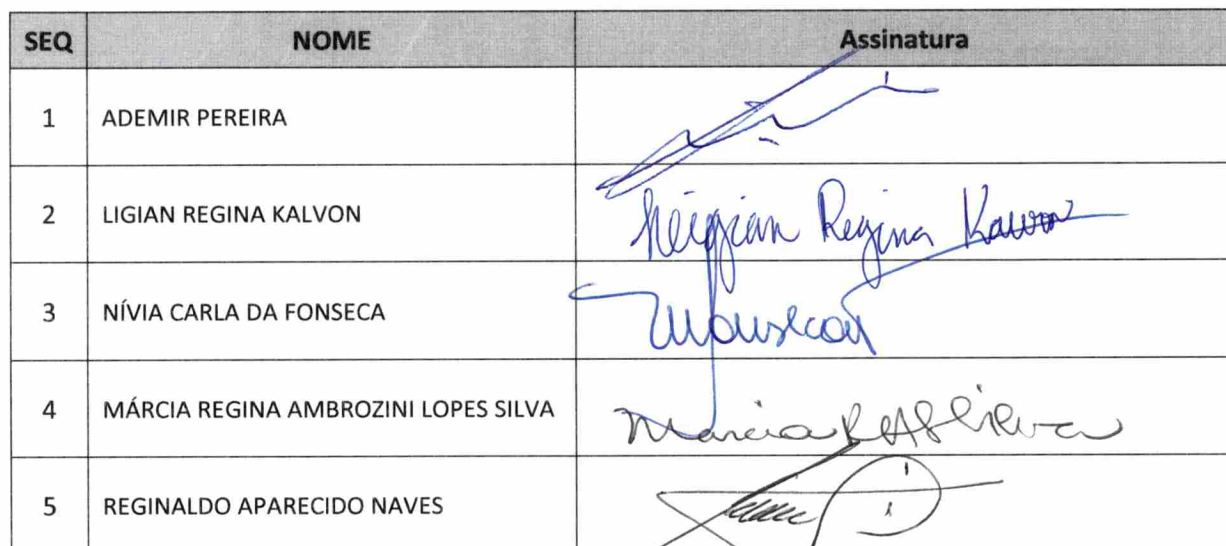 SEQ NOME Assinatura
1 ADEMIR PEREIRA
2 LIGIAN REGINA KALVON Regina
3 NÍVIA CARLA DA FONSECA
4 MÁRCIA REGINA AMBROZINI LOPES SILVA Marcia
5 REGINALDO APARECIDO NAVES